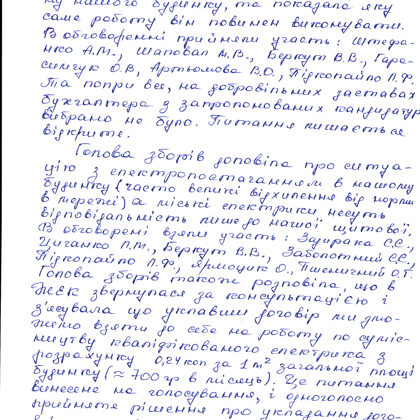 ну нашого будинку, та показала яку
саме роботу він повинен виконувати.
В обговоренні прийняли участь: Штера-
нко А.М., Шаповал М.В., Беркут В.В., Гера-
симчук О.В, Артьомова В.О., Підкопайло Л.Ф.
Та попри все, на добровільних заставах
бухгалтера з запропонованих кандидатур
вибрано не було. Питання лишається
відкрите.
Голова зборів доповіла про ситуа-
цію з електропостачанням в нашому
будинку (часто великі відхилення від норми
в мережі) а міські електрики несуть
відповідальність лише до нашої щитової.
В обговорені взяли участь: Задирака С.Є.,
Циганко Л.М., Беркут В.В., Заболотний С.Є.,
Підкопайло Л.Ф., Ярмоцик О., Пшеничний О.Г.
Голова зборів також розповіла, що в
ЖЕК звернулася за консультацією і
з'ясувала що уклавши договір ми змо-
жемо взяти до себе на роботу по суміс-
ництву кваліфікованого електрика з
розрахунку 0,24 коп за 1 м² загальної площі
будинку (≈ 700 гр в місяць). Це питання
винесене на голосування, і одноголосно
прийняте рішення про укладання дого-